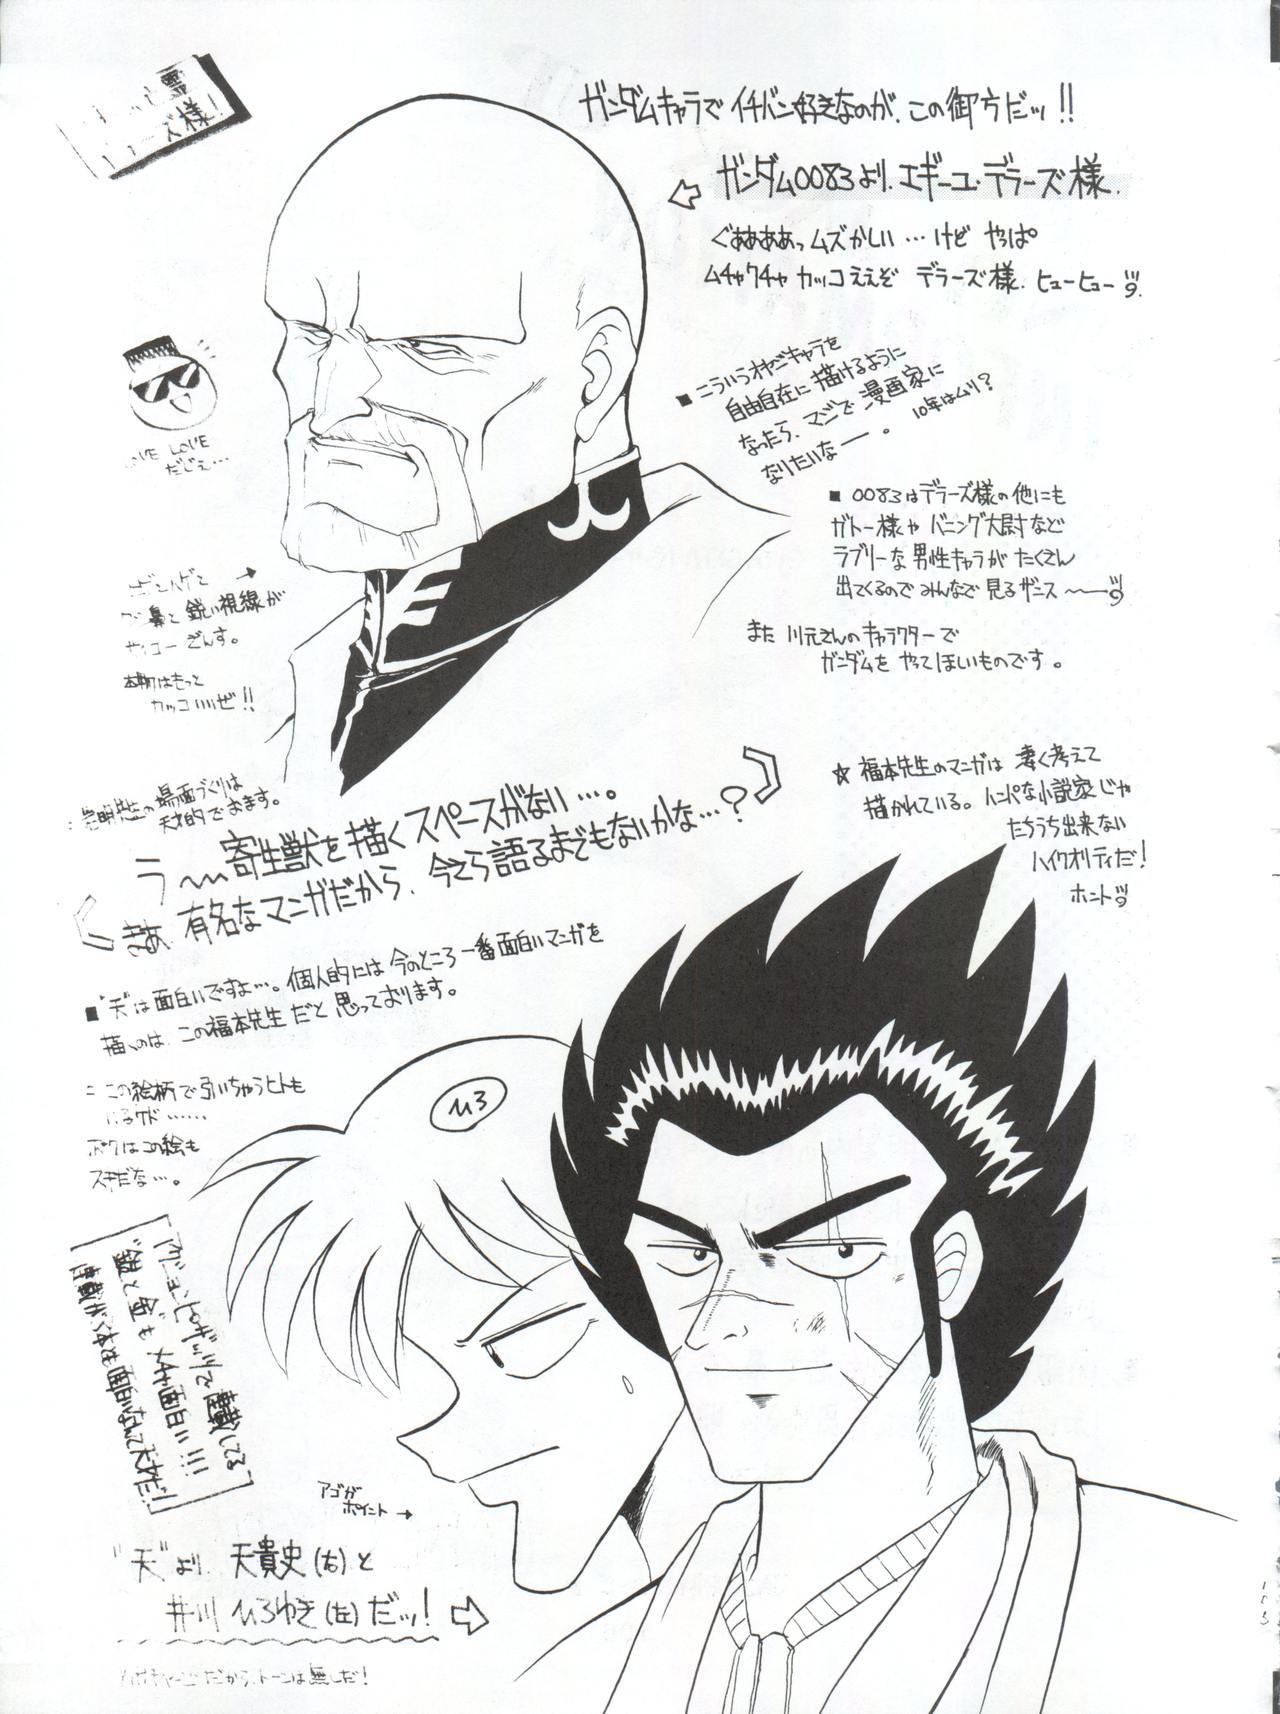 ガンダムキャラで イチバン好きなのが、この御方だッ!!
ガンダム0083より、エギーユ・デラーズ様。
ぐああああっムズかしい…けど やっぱ
ムチャクチャ カッコええぞ デラーズ様、ヒューヒュー
様!
LOVE
だじぇ…
■こういうオヤジキャラを
自由自在に描けるように
なったら、マジで漫画家に
なりたいなー。
10年はムリ?
■0083はデラーズ様の他にも
ガトー様や バニング大尉など
ラブリーな男性キャラが たくさん
出てくるので みんなで見るザンス〜〜
また 川元さんのキャラクターで
ガンダムを やってほしいものです。
鼻と 鋭い視線が
ざんす。
本物はもっと
カッコいいぜ!!
☆ 福本先生のマンガは 凄く考えて
描かれている。ハンパな小説家じゃ
たちうち出来ない
ハイクオリティだ!
ホント
の場面づくりは
天才的でおます。
う〜〜寄生獣を描くスペースがない…。
まあ 有名なマンガだから、今さら語るまでもないかな…?
■“天”は面白いですよ…。個人的には今のところ一番面白いマンガを
描くのは、この福本先生だと思っております。
この絵柄で引いちゃうヒトも
いるケド……
ボクはこの絵も
スキだな…。
ひろ
アクションピザッツで連載してる
“銀と金”も メチャ面白い!!!
連載が2本とも面白いなんて天才だ!
アゴが
ポイント→
“天”より、天貴史(右)と
井川ひろゆき(左)だッ!
だから、トーンは無しだ!